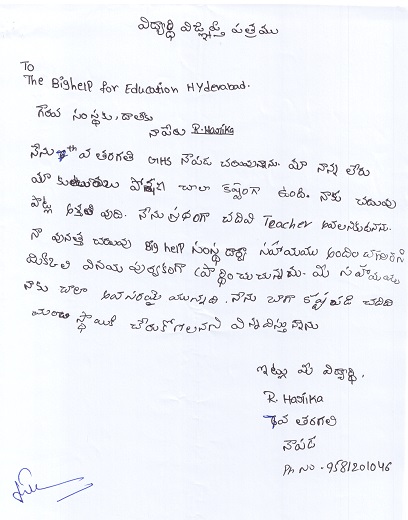 విద్యార్థి విజ్ఞప్తి పత్రము
To
The Bighelp for Education Hyderabad.
గౌరవ సంస్థకు, దాతకు
నాపేరు R. Hasika
నేను 7th వ తరగతి GHS నౌపడ చదువుతున్నాను. మా నాన్న లేరు
మా కుటుంబం పోషణ చాలా కష్టంగా ఉంది. నాకు చదువు
పట్ల ఆసక్తి వుంది. నేను చదివి Teacher అవలనుకున్నాను.
నా చదువు Big help సంస్థ ద్వారా సహాయము
మిక్కిలి వినయ పూర్వకంగా ప్రార్థించుచున్నాను. మీ సహాయము
నాకు చాలా అవసరమై యున్నది. నేను బాగా కష్టపడి చదివి
మంచి స్థాయికి చేరుకోగలనని విన్నవిస్తున్నాను
ఇట్లు మీ విద్యార్థి,
R. Hasika
7వ తరగతి
నౌపడ
Ph No - 9581201046